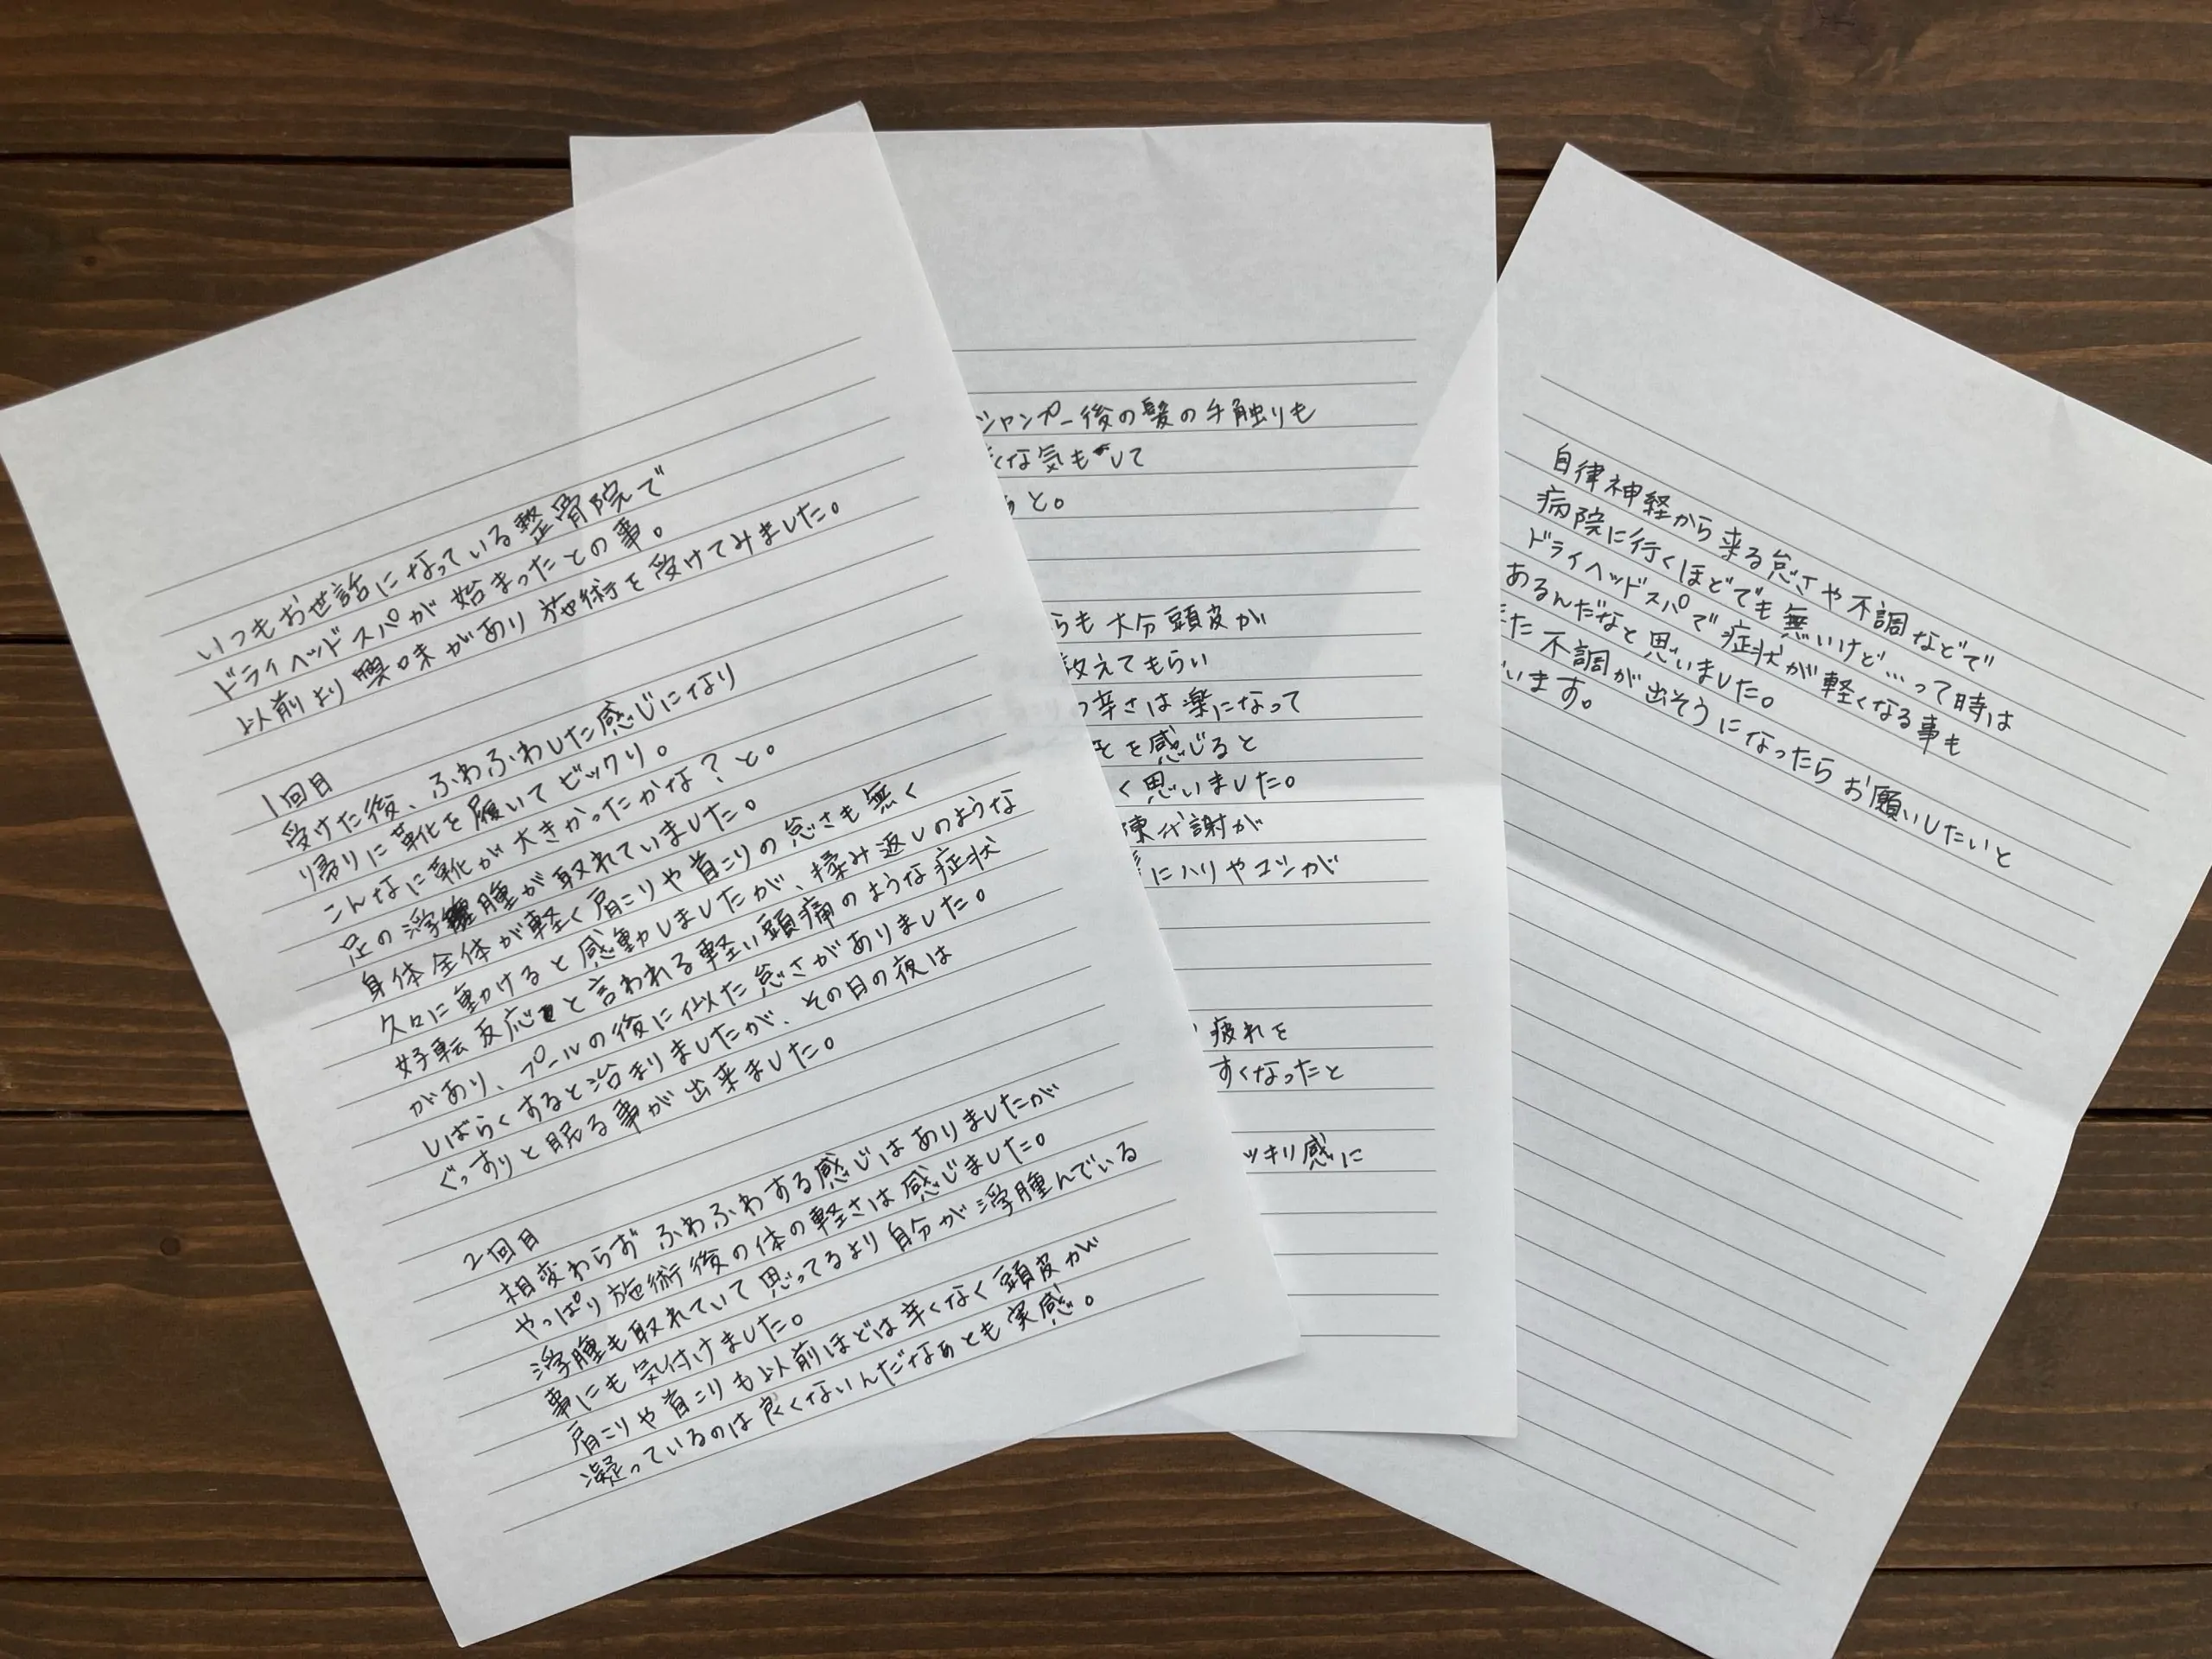 いつもお世話になっている整骨院で
ドライヘッドスパが始まったとの事。
以前より興味があり施術を受けてみました。
1回目
受けた後、ふわふわした感じになり
帰りに靴を履いてビックリ。
こんなに靴が大きかったかな？と。
足の浮腫が取れていました。
身体全体が軽く肩こりや首こりの怠さも無く
久々に動けると感動しましたが、揉み返しのような
好転反応と言われる軽い頭痛のような症状
があり、プールの後に似た怠さがありました。
しばらくすると治まりましたが、その日の夜は
ぐっすりと眠る事が出来ました。
2回目
相変わらずふわふわする感じはありましたが
やっぱり施術後の体の軽さは感じました。
浮腫も取れていて思ってるより自分が浮腫んでいる
事にも気付けました。
肩こりや首こりも以前ほどは辛くなく頭皮が
凝っているのは良くないんだなぁとも実感。
シャンプー後の髪の手触りも
くな気もして
と。
らも大分頭皮が
教えてもらい
辛さは楽になって
を感じると
く思いました。
陳代謝が
にハリやコシが
疲れを
すくなったと
ッキリ感に
自律神経から来る怠さや不調などで
病院に行くほどでも無いけど…って時は
ドライヘッドスパで症状が軽くなる事も
あるんだなと思いました。
た不調が出そうになったらお願いしたいと
います。